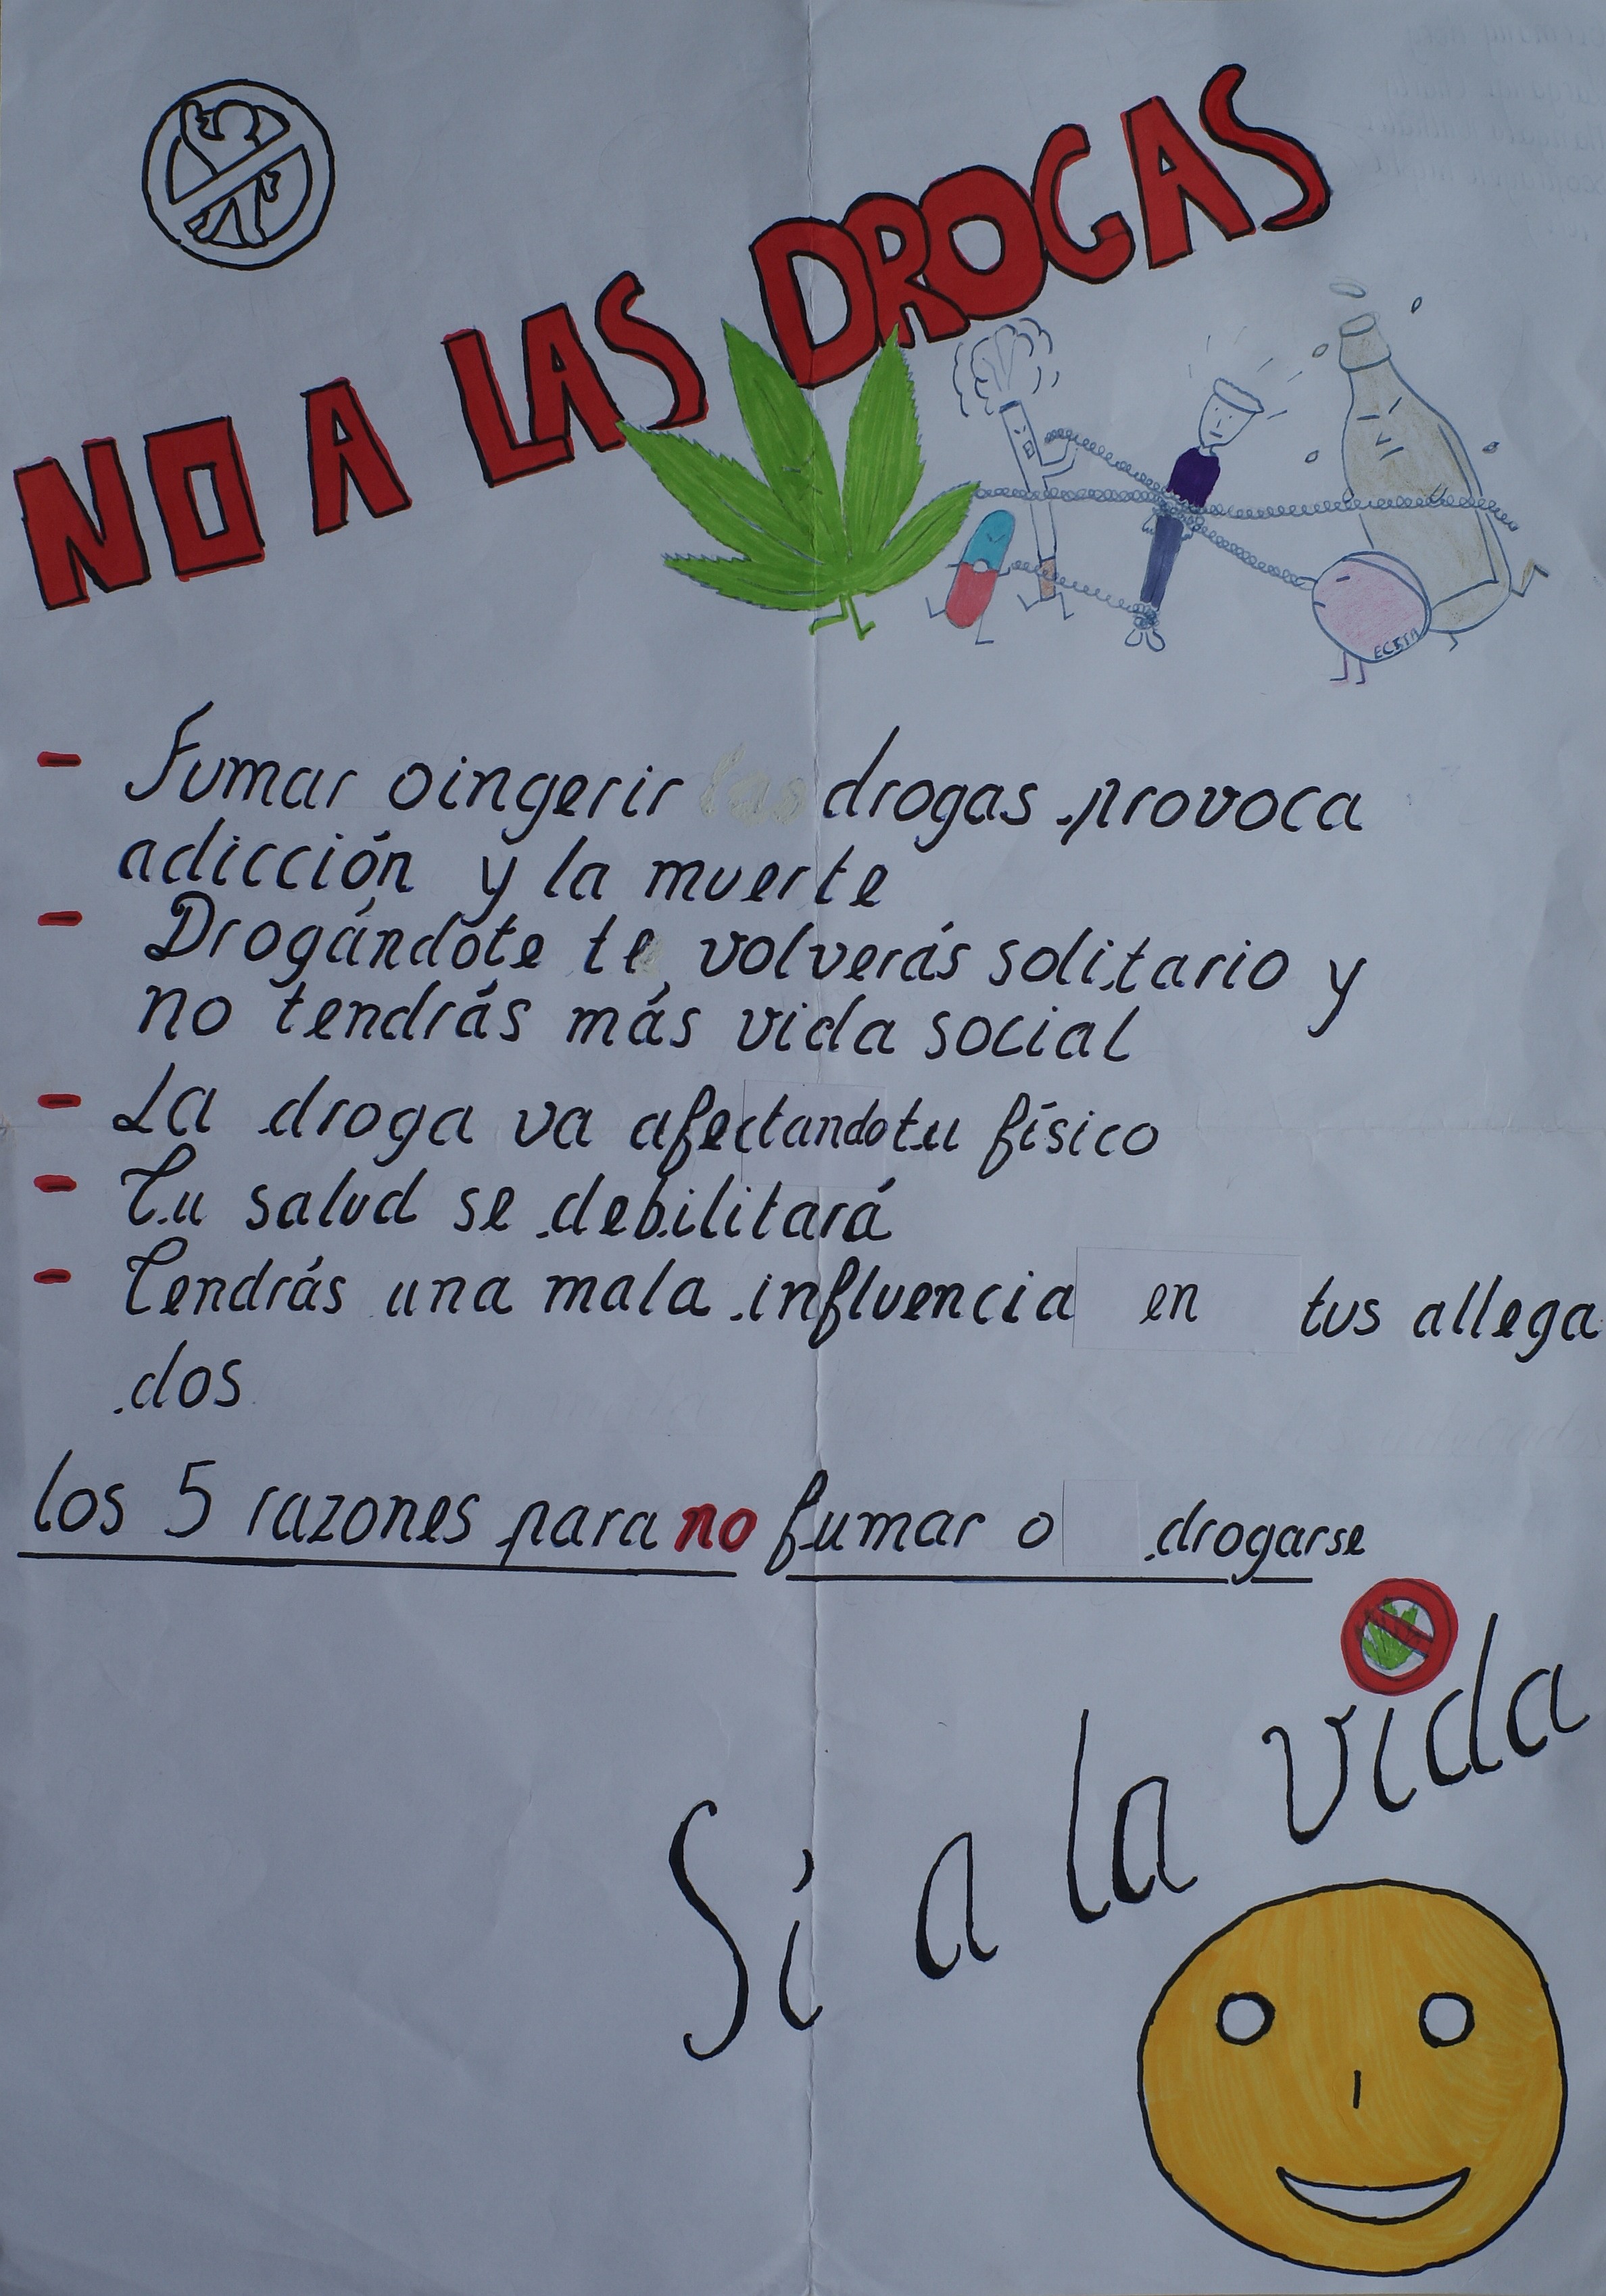 NO A LAS DROGAS
- Fumar o ingerir drogas provoca
adicción y la muerte
- Drogándote te volverás solitario y
no tendrás más vida social
- La droga va afectando tu físico
- Tu salud se debilitará
- Tendrás una mala influencia en tus allega
dos
los 5 razones para no fumar o drogarse
Sí a la vida